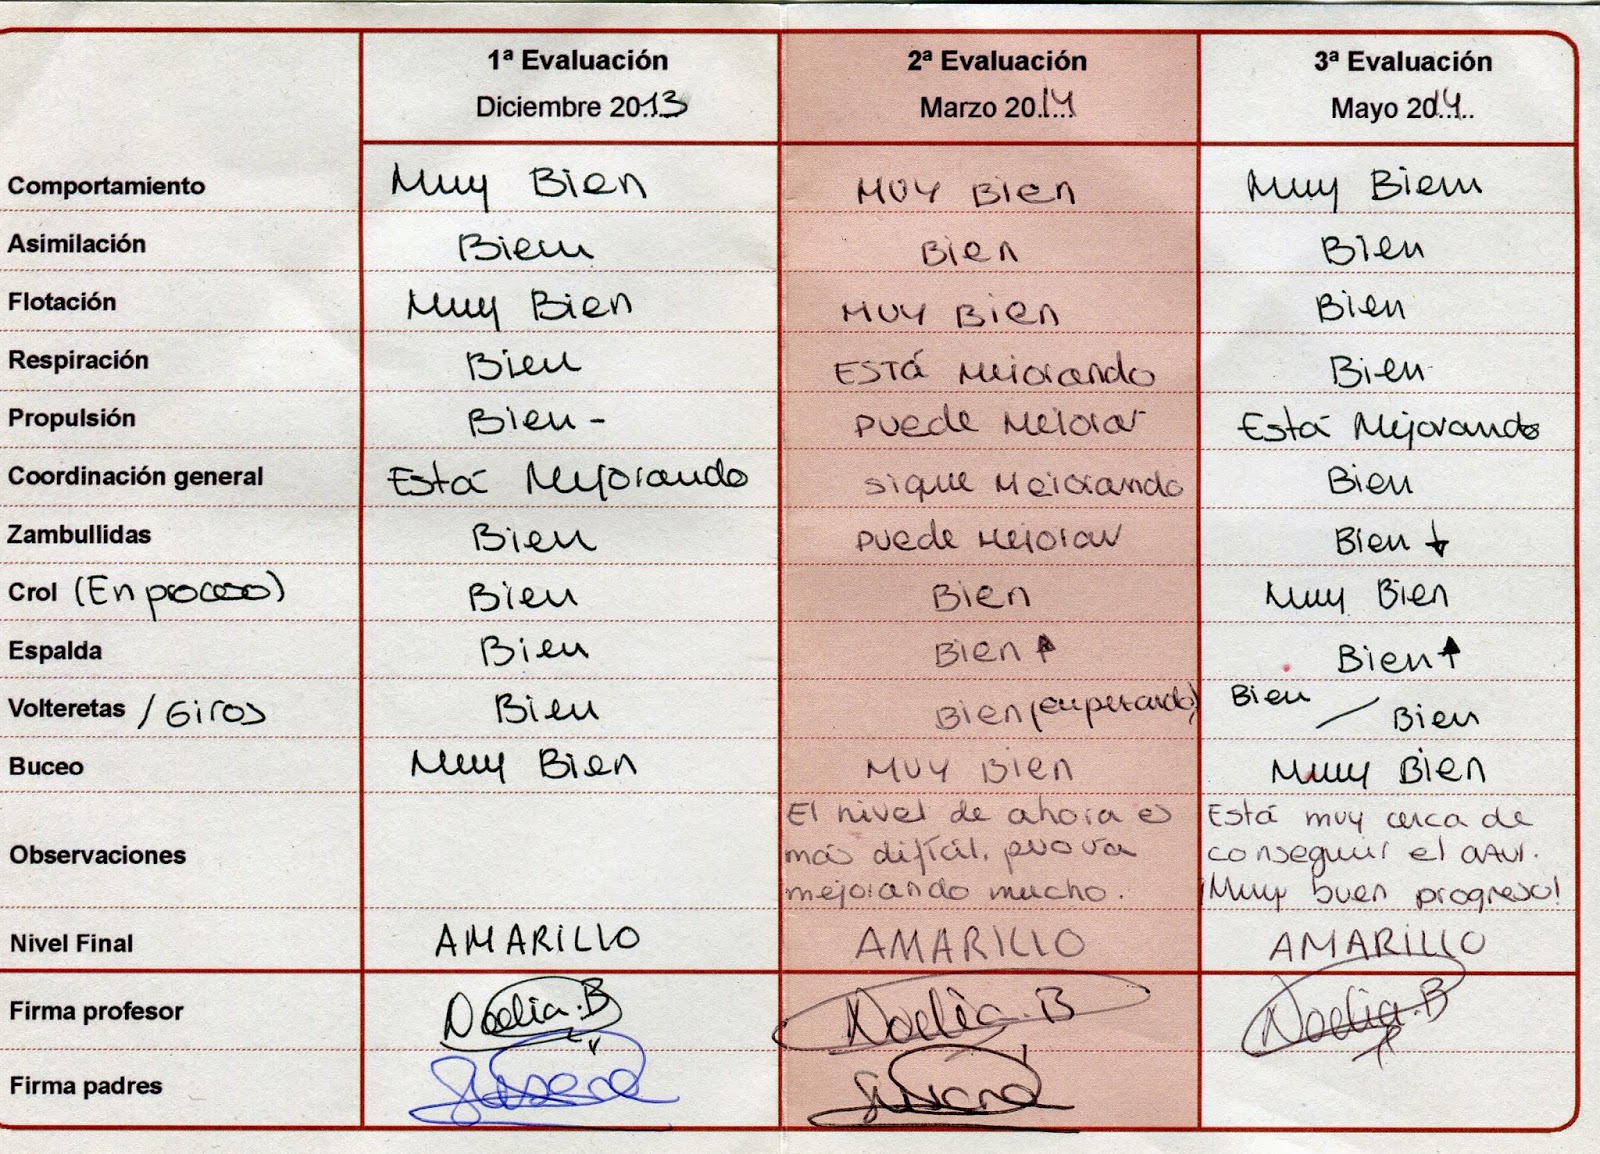 1ª Evaluación 2ª Evaluación 3ª Evaluación
Diciembre 2013 Marzo 2014 Mayo 2014
Comportamiento Muy Bien Muy Bien Muy Bien
Asimilación Bien Bien Bien
Flotación Muy Bien Muy Bien Bien
Respiración Bien Está Mejorando Bien
Propulsión Bien - Puede Mejorar Está Mejorando
Coordinación general Está Mejorando Sigue Mejorando Bien
Zambullidas Bien Puede Mejorar Bien ↓
Crol (En proceso) Bien Bien Muy Bien
Espalda Bien Bien ↑ Bien ↑
Volteretas / Giros Bien Bien Bien / Bien
Buceo Muy Bien Muy Bien Muy Bien
Observaciones
El nivel de ahora es
más difícil, pero va
mejorando mucho.
Está muy cerca de
conseguir el azul.
¡Muy buen progreso!
Nivel Final AMARILLO AMARILLO AMARILLO
Firma profesor Noelia.B Noelia.B Noelia.B
Firma padres